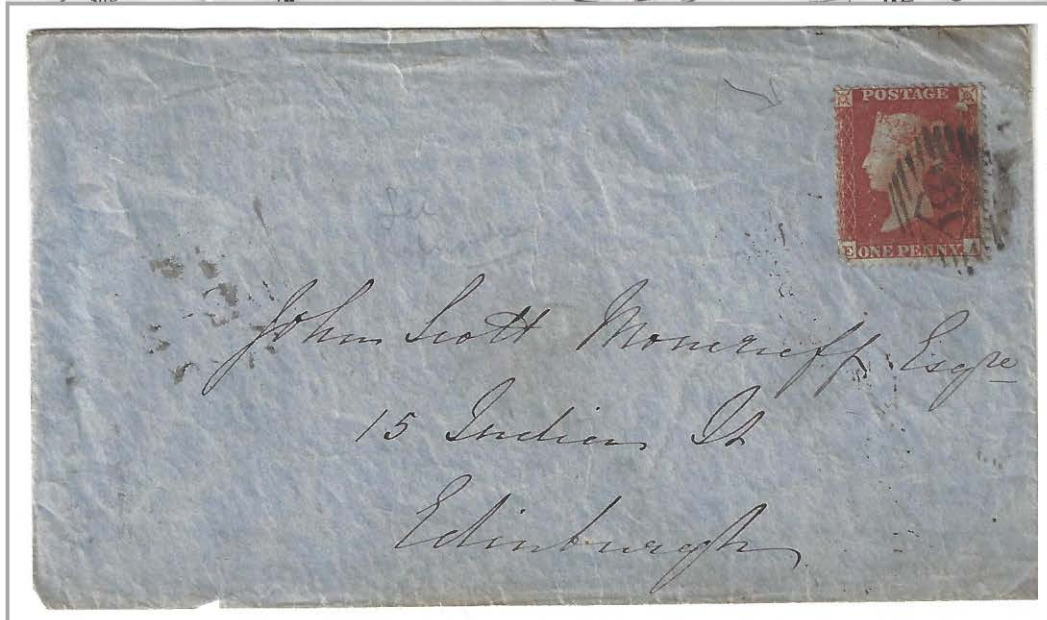 POSTAGE
E ONE PENNY A
John Scott Moncrieff Esqre
15 India St
Edinburgh